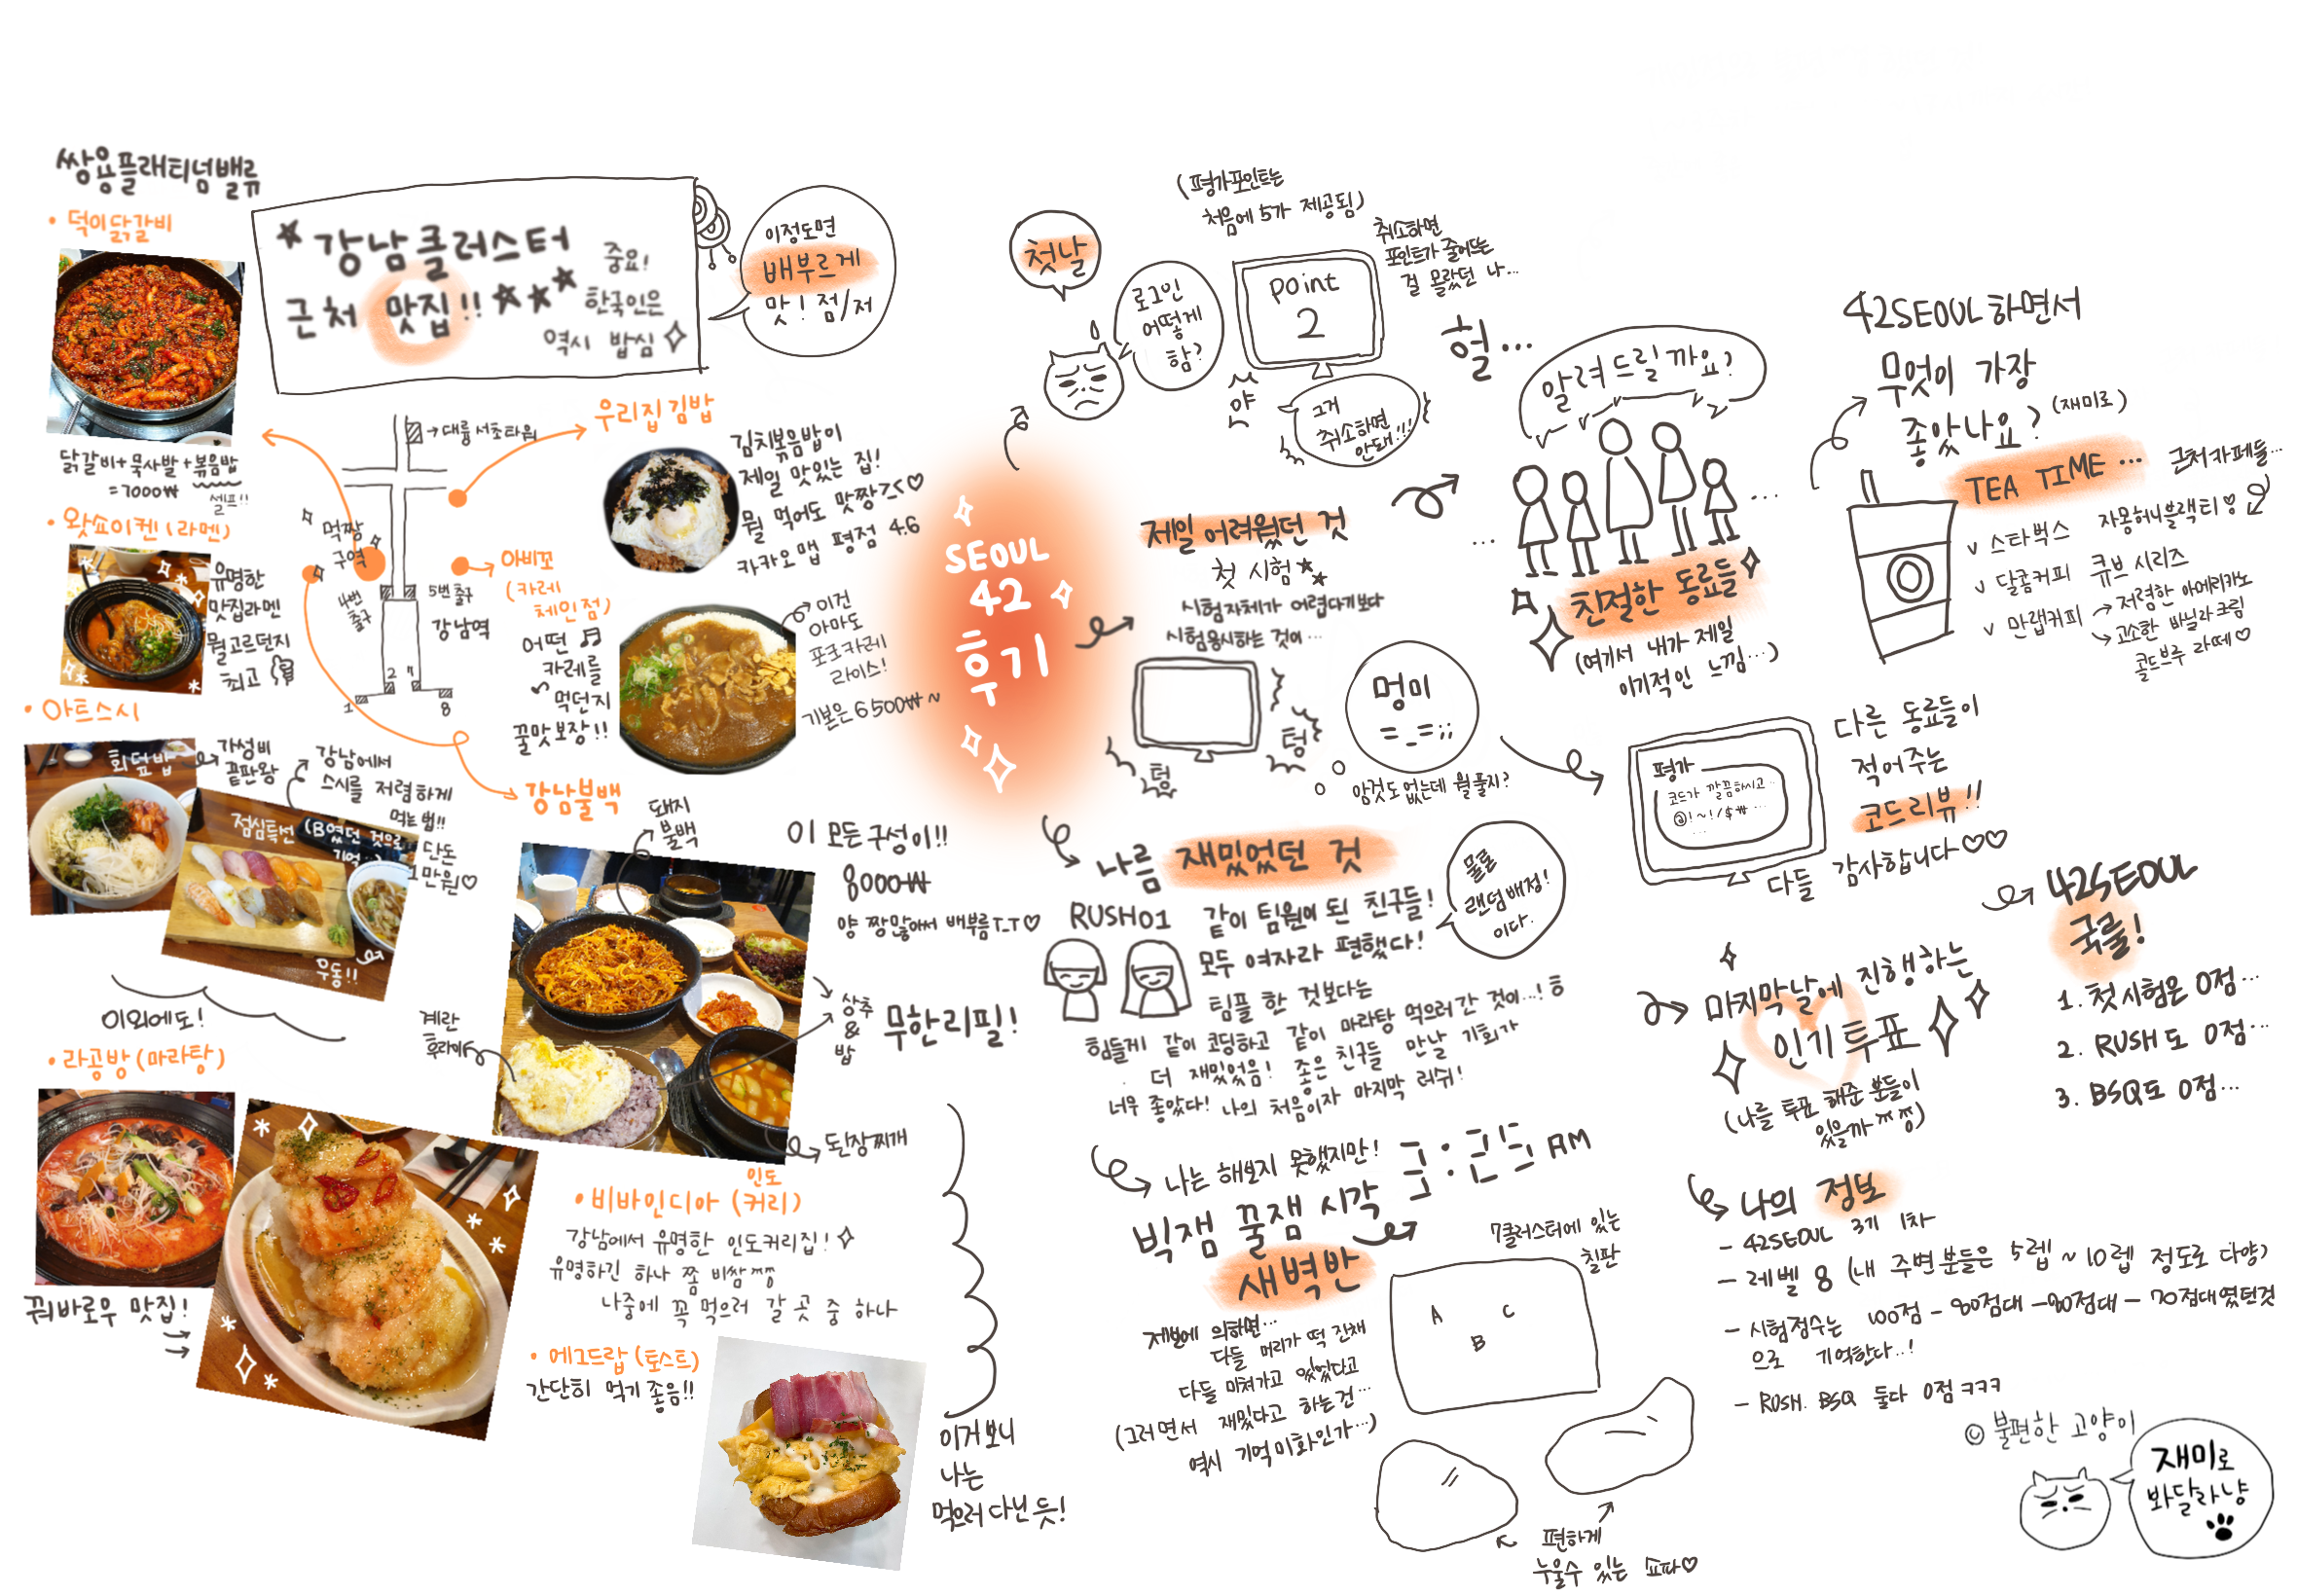 쌍용플래티넘밸류
• 덕이닭갈비
닭갈비+묵사발+볶음밥
=7000₩
셀프!!
• 왓쇼이켄(라멘)
유명한
맛집라멘
뭘고르던지
최고
• 아트스시
회덮밥
가성비
끝판왕
강남에서
스시를 저렴하게
먹는 법!!
점심특선 (B였던 것으로
기억...)
단돈
1만원♡
우동!!
이외에도!
• 라공방(마라탕)
꿔바로우 맛집!
★ 강남클러스터
근처 맛집!! ★★★
중요!
한국인은
역시 밥심
이정도면
배부르게
맛!점/저
→대륭서초타워
먹짱
구역
4번
출구
5번출구
강남역
2
1
8
우리집김밥
김치볶음밥이
제일 맛있는 집!
뭘 먹어도 맛짱><♡
카카오맵 평점 4.6
아비꼬
(카레
체인점)
어떤
카레를
먹던지
꿀맛보장!!
이건
아마도
포크카레
라이스!
기본은 6500₩~
강남불백
돼지
불백
이 모든 구성이!!
8000₩
양 짱많아서 배부름T_T♡
상추
&
밥
무한리필!
계란
후라이
된장찌개
• 비바인디아 (커리)
인도
강남에서 유명한 인도커리집!
유명하긴 하나 쫌 비쌈ㅉㅉ
나중에 꼭 먹으러 갈 곳 중 하나
• 에그드랍(토스트)
간단히 먹기 좋음!!
이거보니
나는
먹으러 다닌듯!
SEOUL
42
후기
첫날
로그인
어떻게
함?
(평가포인트는
처음에 5가 제공됨)
point
2
취소하면
포인트가 줄어드는
걸 몰랐던 나...
얀
그거
취소하면
안돼!!!
헐...
알려드릴까요?
...
...
친절한 동료들
(여기서 내가 제일
이기적인 느낌...)
제일 어려웠던 것
첫 시험★★
시험자체가 어렵다기보다
시험응시하는 것이...
텅
텅
멍미
=_=;;
암것도 없는데 뭘 풀지?
평가
코드가 깔끔하시고..
@!~!/$₩...
...
다른 동료들이
적어주는
코드리뷰!!
다들 감사합니다♡♡
42SEOUL하면서
무엇이 가장
좋았나요?
(재미로)
TEA TIME ...
근처카페들...
v 스타벅스 자몽허니블랙티♡
v 달콤커피 큐브 시리즈
v 만랩커피 → 저렴한 아메리카노
→ 고소한 바닐라크림
콜드브루 라떼♡
나름 재밌었던 것
RUSH01
같이 팀원이 된 친구들!
모두 여자라 편했다!
물론
랜덤배정!
이다.
팀플 한 것보다는
힘들게 같이 코딩하고 같이 마라탕 먹으러 간 것이...!ㅎ
더 재밌었음! 좋은 친구들 만날 기회가
너무 좋았다! 나의 처음이자 마지막 러쉬!
나는 해보지 못했지만!
빅잼 꿀잼 시각
AM
새벽반
제보에 의하면...
다들 머리가 떡 진채
다들 미쳐가고 있었다고
(그러면서 재밌다고 하는건...
역시 기억미화인가...)
7클러스터에 있는
칠판
A
B
C
편하게
누울수 있는 쇼파♡
마지막날에 진행하는
인기투표
(나를 투표 해준 분들이
있을까ㅉㅉ)
42SEOUL
국룰!
1. 첫시험은 0점...
2. RUSH도 0점...
3. BSQ도 0점...
나의 정보
- 42SEOUL 3기 1차
- 레벨 8 (내 주변분들은 5렙~10렙 정도로 다양)
- 시험점수는 100점-80점대-90점대-70점대였던것
으로 기억한다..!
- RUSH. BSQ 둘다 0점 ㅋㅋㅋ
© 불편한 고양이
재미로
봐달라냥